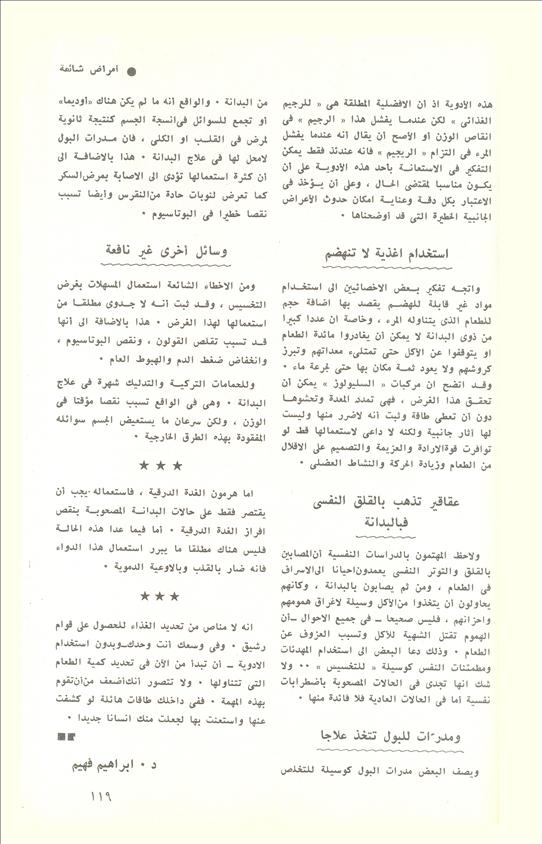 ● أمراض شائعة
هذه الأدوية اذ أن الافضلية المطلقة هى « للرجيم
الغذائى » لكن عندما يفشل هذا « الرجيم » فى
انقاص الوزن أو الأصح أن يقال أنه عندما يفشل
المرء فى التزام « الريجيم » فانه عندئذ فقط يمكن
التفكير فى الاستعانة بأحد هذه الأدوية على أن
يكون مناسبا لمقتضى الحال ، وعلى أن يؤخذ فى
الاعتبار بكل دقة وعناية امكان حدوث الأعراض
الجانبية الخطيرة التى قد أوضحناها ٠
استخدام اغذية لا تنهضم
واتجه تفكير بعض الاخصائيين الى استخدام
مواد غير قابلة للهضم يقصد بها اضافة حجم
للطعام الذى يتناوله المرء ، وخاصة ان عددا كبيرا
من ذوى البدانة لا يمكن أن يغادروا مائدة الطعام
او يتوقفوا عن الأكل حتى تمتلىء معداتهم وتبرز
كروشهم ولا يعود ثمة مكان بها حتى لجرعة ماء ٠
وقد اتضح ان مركبات « السليولوز » يمكن أن
تحقق هذا الغرض ، فهى تمدد المعدة وتحشوها
دون أن تعطى طاقة وثبت أنه لاضرر منها وليست
لها آثار جانبية ولكنه لا داعى لاستعمالها قط لو
توافرت قوة الارادة والعزيمة والتصميم على الاقلال
من الطعام وزيادة الحركة والنشاط العضلى ٠
عقاقير تذهب بالقلق النفسى
فبالبدانة
ولاحظ المهتمون بالدراسات النفسية أن المصابين
بالقلق والتوتر النفسى يعمدون احيانا الى الاسراف
فى الطعام ، ومن ثم يصابون بالبدانة ، وكأنهم
يحاولون أن يتخذوا من الأكل وسيلة لاغراق همومهم
واحزانهم ، فليس صحيحا ــ فى جميع الاحوال ــ أن
الهموم تقتل الشهية للأكل وتسبب العزوف عن
الطعام ٠ وذلك دعا البعض الى استخدام المهدئات
ومطمئنات النفس كوسيلة « للتخسيس » ٠٠ ولا
شك انها تجدى فى الحالات المصحوبة باضطرابات
نفسية أما فى الحالات العادية فلا فائدة منها ٠
ومدرّات للبول تتخذ علاجا
ويصف البعض مدرات البول كوسيلة للتخلص
من البدانة ٠ والواقع أنه ما لم يكن هناك «أوديما»
أو تجمع للسوائل فى انسجة الجسم كنتيجة ثانوية
لمرض فى القلب او الكلى ، فان مدرات البول
لامحل لها فى علاج البدانة ٠ هذا بالاضافة الى
أن كثرة استعمالها تؤدى الى الاصابة بمرض السكر
كما تعرض لنوبات حادة من النقرس وأيضا تسبب
نقصا خطيرا فى البوتاسيوم ٠
وسائل أخرى غير نافعة
ومن الاخطاء الشائعة استعمال المسهلات بغرض
التخسيس ، وقد ثبت أنه لا جدوى مطلقا من
استعمالها لهذا الغرض ٠ هذا بالاضافة الى أنها
قد تسبب تقلص القولون ، ونقص البوتاسيوم ،
وانخفاض ضغط الدم والهبوط العام ٠
وللحمامات التركية والتدليك شهرة فى علاج
البدانة ٠ وهى فى الواقع تسبب نقصا مؤقتا فى
الوزن ، ولكن سرعان ما يستعيض الجسم سوائله
المفقودة بهذه الطرق الخارجية ٠
★ ★ ★
اما هرمون الغدة الدرقية ، فاستعماله يجب أن
يقتصر فقط على حالات البدانة المصحوبة بنقص
افراز الغدة الدرقية ٠ أما فيما عدا هذه الحالة
فليس هناك مطلقا ما يبرر استعمال هذا الدواء
فانه ضار بالقلب وبالاوعية الدموية ٠
★ ★ ★
انه لا مناص من تحديد الغذاء للحصول على قوام
رشيق ٠ وفى وسعك أنت وحدك ــ وبدون استخدام
الادوية ــ أن تبدأ من الآن فى تحديد كمية الطعام
التى تتناولها ٠ ولا تتصور أنك أضعف من أن تقوم
بهذه المهمة ٠ ففى داخلك طاقات هائلة لو كشفت
عنها واستعنت بها لجعلت منك انسانا جديدا ٠
د ٠ ابراهيم فهيم
١١٩